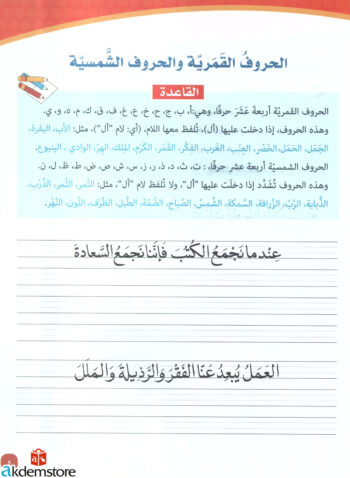 الحروفُ القَمَريّة والحروف الشَّمسيّة
القاعدة
الحروف القمريّة أربعةَ عَشَرَ حرفًا، وهي: أ، ب، ج، ح، خ، ع، غ، ف، ق، ك، م، ه، و، ي.
وهذه الحروف، إذا دخلت عليها (أل)، تُلفظ معها اللام، (أي: لام "أل")، مثل: الأب، البقرة،
الجَمَل، الحَمَل، الخَصْر، العِنَب، الغَرب، الفِكْر، القَمَر، الكَرَم، المِلك، الهِرّ، الوادي، الينبوع.
الحروف الشمسيّة أربعة عشر حرفًا، : ت، ث، د، ذ، ر، ز، س، ش، ص، ض، ط، ظ، ل، ن.
وهذه الحروف تُشَدَّد إذا دخلَت عليها "أل"، ولا تُلفظ لام "أل"، مثل: التمر، الثمر، الدَّرْب،
الذُّبابة، الرَّبّ، الزَّرافة، السَّمكة، الشَّمسُ، الصّباح، الضّفة، الطّبل، الظّرْف، اللّون، النّهْر.
عِنْدما نَجْمَعُ الكُتُبَ فَإنَّنا نَجمَعُ السَّعادةَ
العَمَلُ يُبعِدُ عَنّا الفَقْرَ وَالرَّذيلةَ وَالمَلَلَ
akdemstore